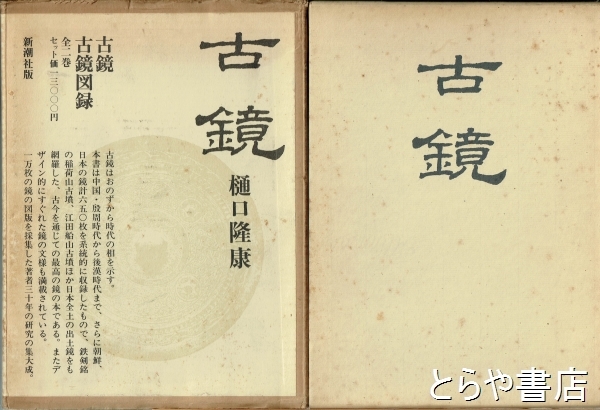 古鏡
樋口隆康
古鏡
古鏡図録
全二巻
セット価一三〇〇〇円
新潮社版
古鏡はおのずから時代の相を示す。
本書は中国・殷周時代から後漢時代まで、さらに朝鮮、
日本の鏡計六五〇枚を系統的に収録したもので、鉄剣銘
の稲荷山古墳、江田船山古墳ほか日本全土の出土鏡をも
網羅した、古今を通じての最高の鏡の本である。またデ
ザイン的にすぐれた鏡の文様も満載されている。
一万枚の鏡の図版を採集した著者三十年の研究の集大成。
古鏡
とらや書店